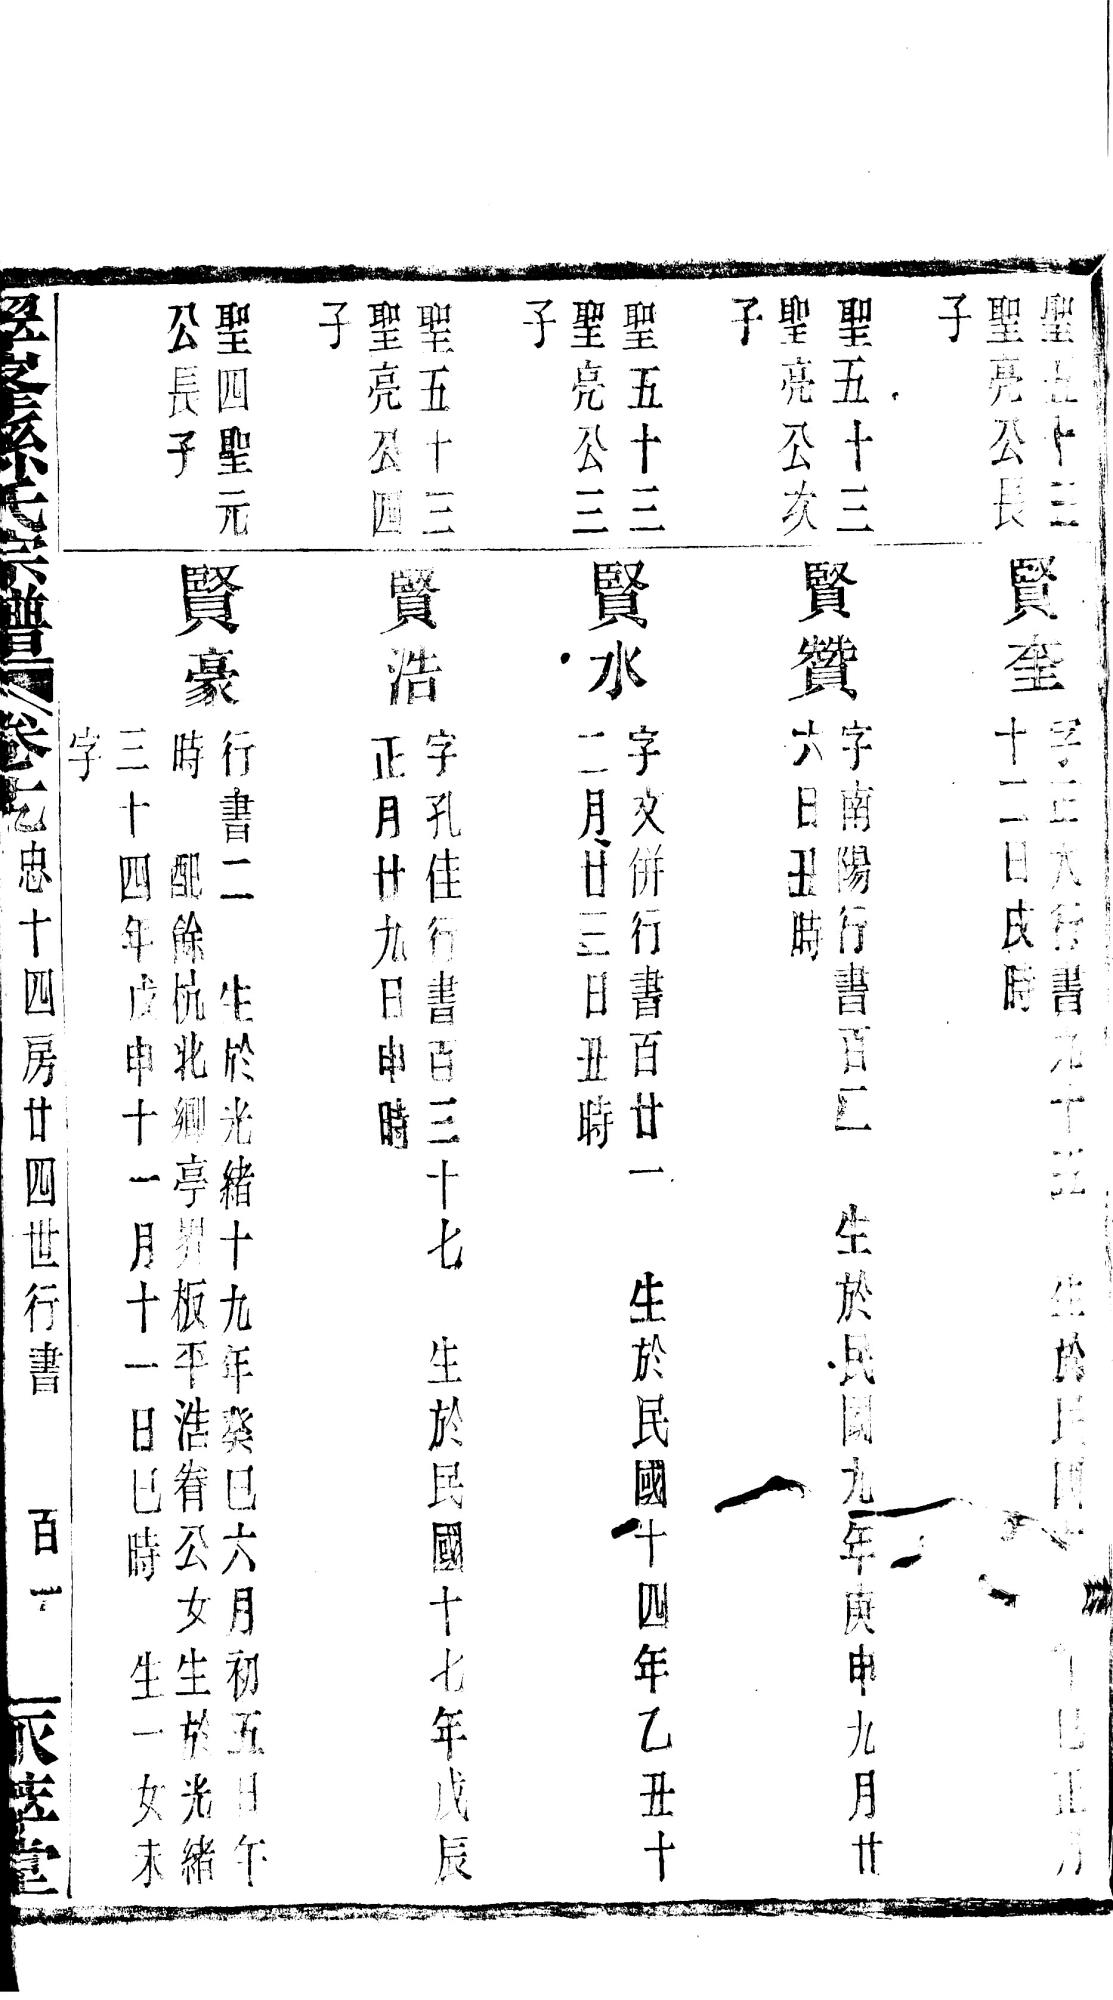 聖五十三
聖亮公長
子
賢奎
字正大行書九十五 生於民國 年 巳正月
十二日戌時
聖五十三
聖亮公次
子
賢贊
字南陽行書百 生於民國九年庚申九月廿
六日丑時
聖五十三
聖亮公三
子
賢水
字文併行書百廿一 生於民國十四年乙丑十
二月廿三日丑時
聖五十三
聖亮公四
子
賢浩
字孔佳行書百三十七 生於民國十七年戊辰
正月廿九日申時
聖四聖元
公長子
賢豪
行書二 生於光緒十九年癸巳六月初五日午
時 配餘杭北鄉亭 板平浩眷公女生於光緒
三十四年戊申十一月十一日巳時 生一女未
字
孫氏宗譜 卷七 忠十四房廿四世行書 百 堂